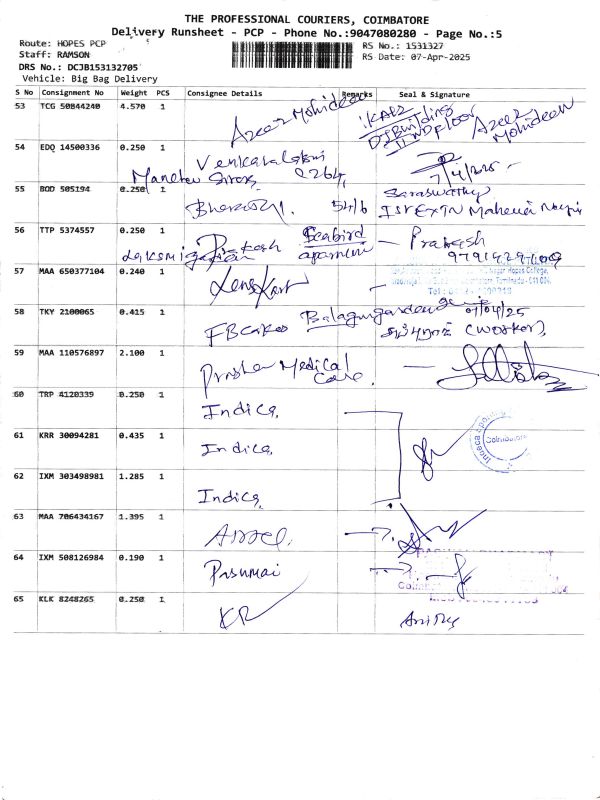 THE PROFESSIONAL COURIERS, COIMBATORE
Delivery Runsheet - PCP - Phone No.:9047080280 - Page No.:5
Route: HOPES PCP
RS No.: 1531327
Staff: RAMSON
RS Date: 07-Apr-2025
DRS No.: DCJB153132705
Vehicle: Big Bag Delivery
S No Consignment No Weight PCS Consignee Details Remarks Seal & Signature
53 TCG 50844240 4.570 1 Azeez Mohideen Azeez Mohideen
54 EDQ 14500336 0.250 1 Venkatalaksmi 2264, 7/4/25
55 BOD 505194 0.250 1 Bharathy. 54/6 Saraswathy
56 TTP 5374557 0.250 1 Prakash Seabird apartment - Prakash
57 MAA 650377104 0.240 1 Lenskart
58 TKY 2100065 0.415 1 FB cakes 07/04/25 (worker)
59 MAA 110576897 2.100 1 Medical Care
60 TRP 4120339 0.250 1 Indica,
61 KRR 30094281 0.435 1 Indica, Coimbatore
62 IXM 303498981 1.285 1 Indica,
63 MAA 706434167 1.395 1
64 IXM 508126984 0.190 1 Pasumai
65 KLK 8248265 0.250 1 KR